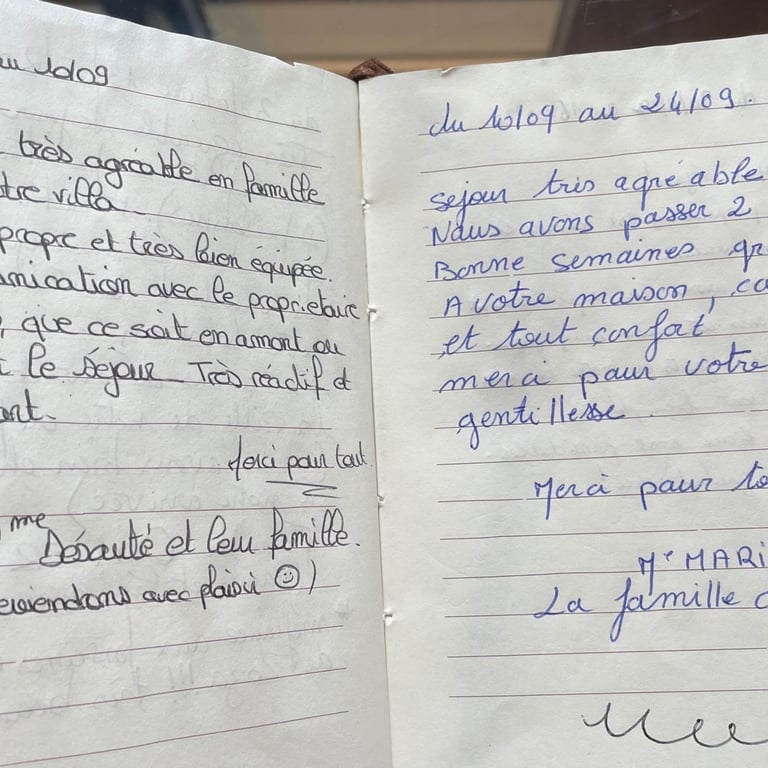 au 10/09
très agréable en famille
tre villa
propre et très bien équipée.
nication avec le proprietaire
, que ce soit en amont ou
le séjour Très réactif et
ant.
Merci pour tout
me Désauté et leur famille.
eviendrons avec plaisir ☺)
du 10/09 au 24/09.
séjour tris agréable
Nous avons passer 2
Bonne semaines gr
A votre maison, ca
et tout confort
merci pour votre
gentillesse.
Merci pour to
Me MARi
La famille